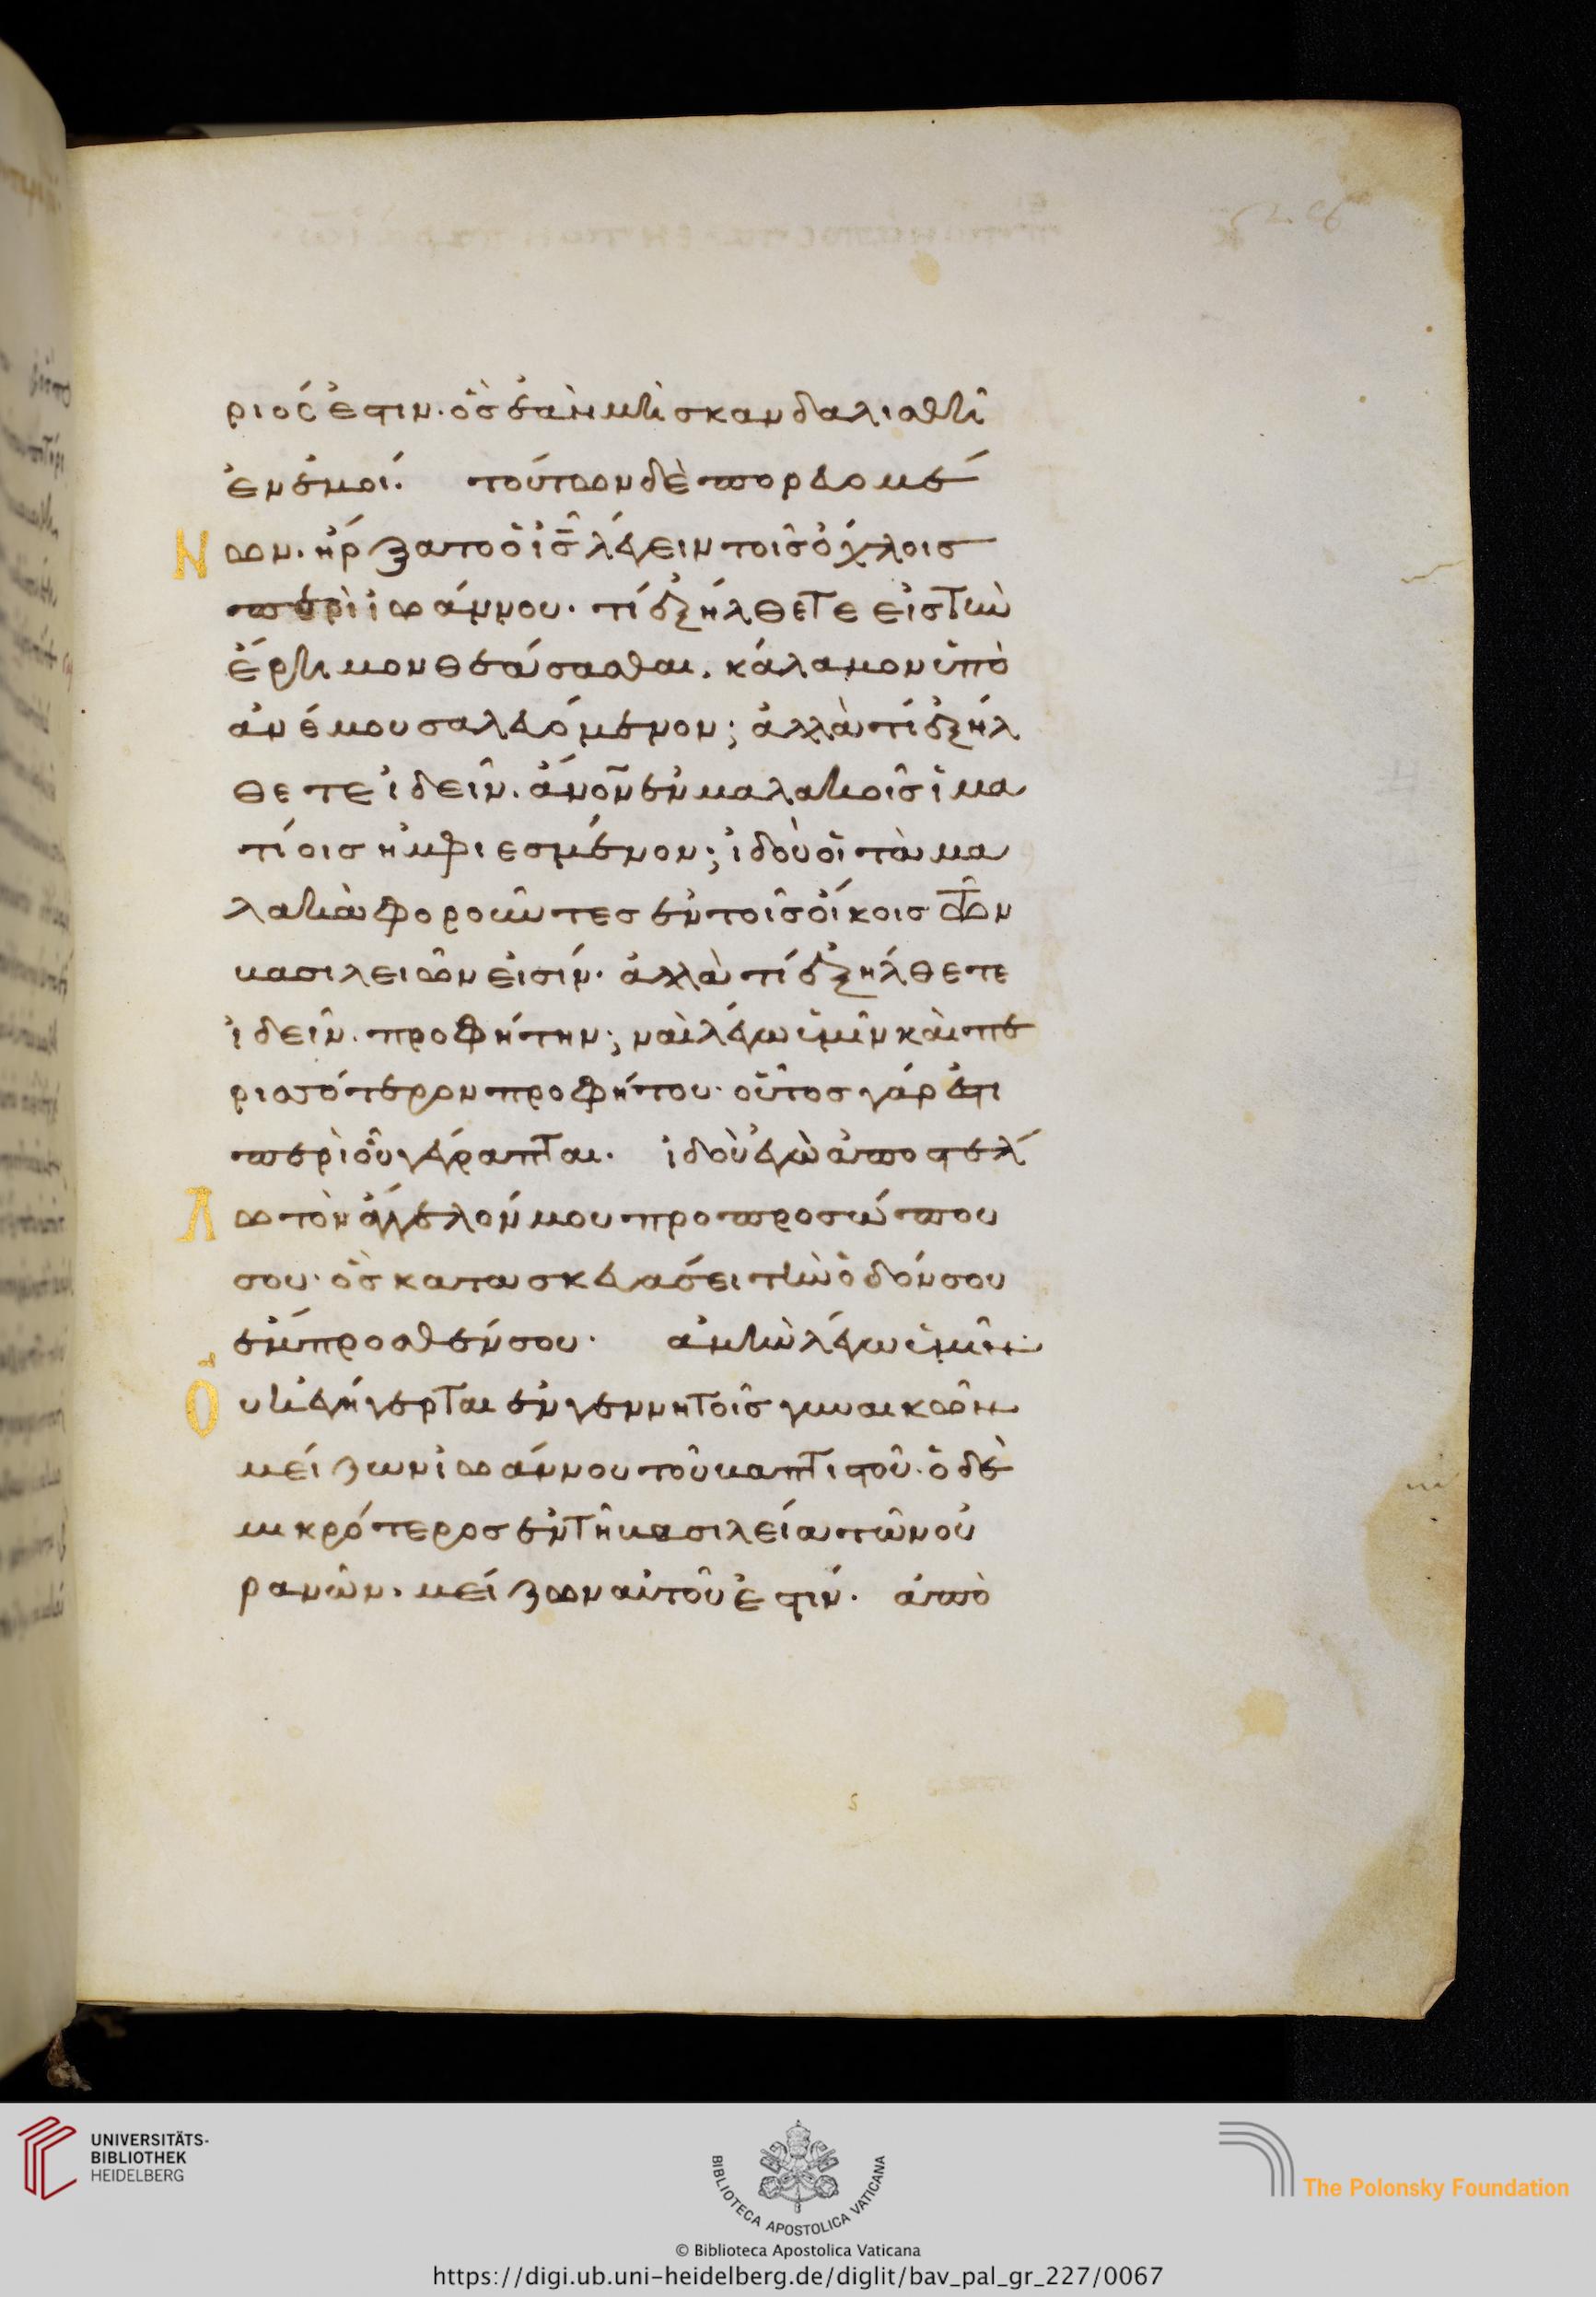 ριός ἐστιν· ὃς ἐὰν μὴ σκανδαλισθῆ
ἐν ἐμοί. τούτων δὲ πορευομέ
Νων. ἤρξατο ὁ ις λέγειν τοῖς ὄχλοις
περὶ ἰωάννου· τί ἐξήλθετε εἰς τὴν
ἔρημον θεάσασθαι. κάλαμον ὑπὸ
ἀνέμου σαλευόμενον; ἀλλὰ τί ἐξήλ
θετε ἰδεῖν. ἄνον ἐν μαλακοῖς ἱμα
τίοις ἠμφιεσμένον; ἰδοὺ οἱ τὰ μα
λακὰ φοροῦντες ἐν τοῖς οἴκοις τῶν
βασιλειῶν εἰσίν· ἀλλὰ τί ἐξήλθετε
ἰδεῖν. προφήτην; ναὶ λέγω ὑμῖν καὶ πε
ρισσότερον προφήτου· οὗτος γάρ ἐστι
περὶ οὗ γέγραπται. ἰδοὺ ἐγὼ ἀποστέλ
Λω τὸν ἄγγελόν μου προ προσώπου
σου· ὃς κατασκευάσει τὴν ὁδόν σου
ἔμπροσθέν σου· ἀμὴν λέγω ὑμῖν·
Οὐκ ἐγήγερται ἐν γεννητοῖς γυναικῶν
μείζων ἰωάννου τοῦ βαπτιστοῦ· ὁ δὲ
μικρότερος ἐν τῆ βασιλεία τῶν οὐ
ρανῶν· μείζων αὐτοῦ ἐστίν· ἀπὸ
UNIVERSITÄTS-
BIBLIOTHEK
HEIDELBERG
BIBLIOTECA APOSTOLICA VATICANA
The Polonsky Foundation
© Biblioteca Apostolica Vaticana
https://digi.ub.uni-heidelberg.de/diglit/bav_pal_gr_227/0067